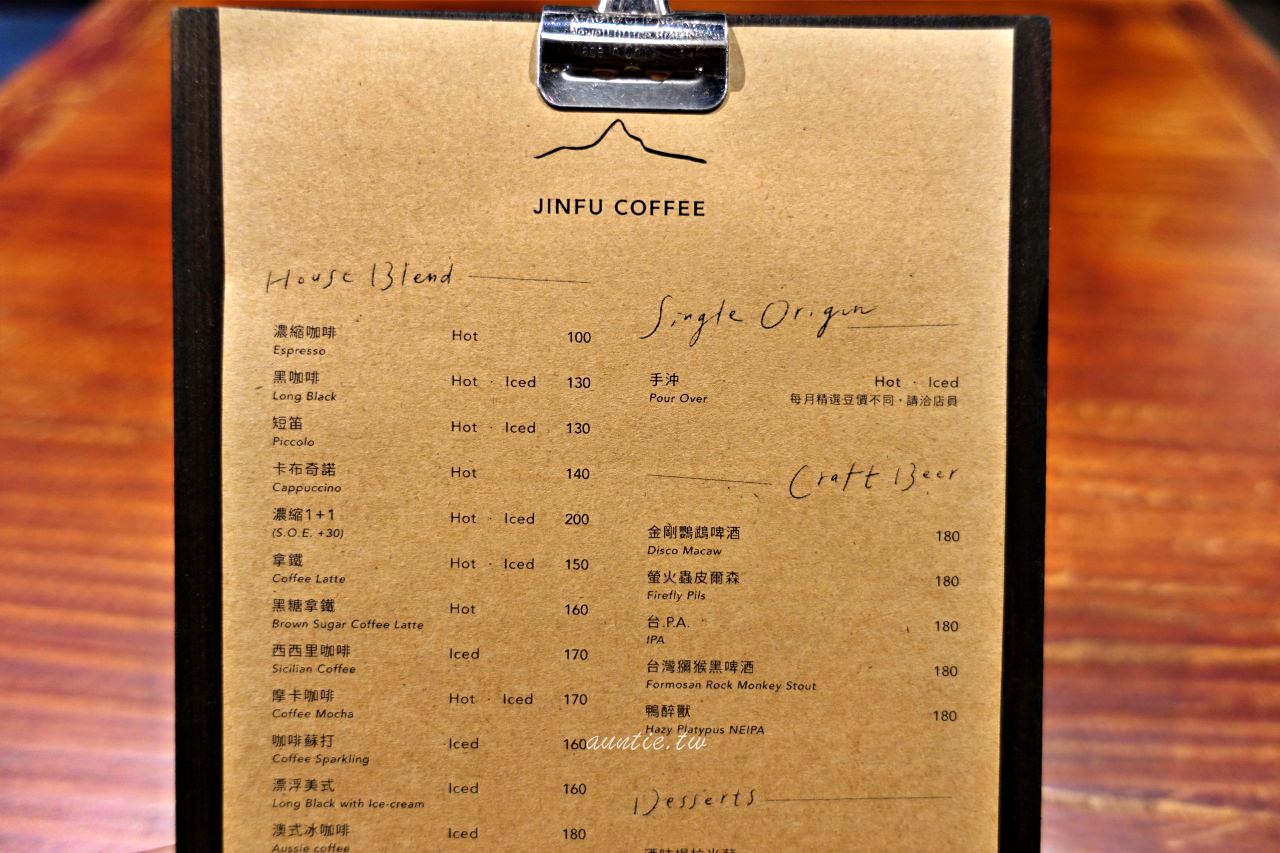 JINFU COFFEE
House Blend
濃縮咖啡 Hot 100
Espresso
黑咖啡 Hot · Iced 130
Long Black
短笛 Hot · Iced 130
Piccolo
卡布奇諾 Hot 140
Cappuccino
濃縮1+1 Hot · Iced 200
(S.O.E. +30)
拿鐵 Hot · Iced 150
Coffee Latte
黑糖拿鐵 Hot 160
Brown Sugar Coffee Latte
西西里咖啡 Iced 170
Sicilian Coffee
摩卡咖啡 Hot · Iced 170
Coffee Mocha
咖啡蘇打 Iced 160
Coffee Sparkling
漂浮美式 Iced 160
Long Black with Ice-cream
澳式冰咖啡 Iced 180
Aussie coffee
Single Origin
手沖 Hot · Iced
Pour Over 每月精選豆價不同，請洽店員
Craft Beer
金剛鸚鵡啤酒 180
Disco Macaw
螢火蟲皮爾森 180
Firefly Pils
台.P.A. 180
IPA
台灣獼猴黑啤酒 180
Formosan Rock Monkey Stout
鴨醉獸 180
Hazy Platypus NEIPA
auntie.tw
Desserts